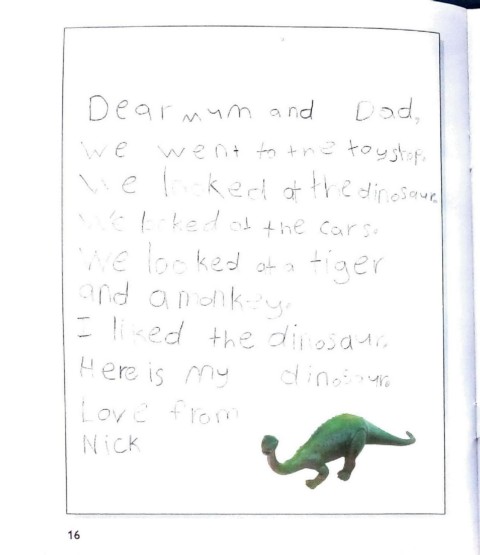 Dear mum and Dad,
We went to the toyshop.
We looked at the dinosaur.
We looked at the cars.
We looked at a tiger
and a monkey.
I liked the dinosaur.
Here is my dinosaur.
Love from
Nick
16